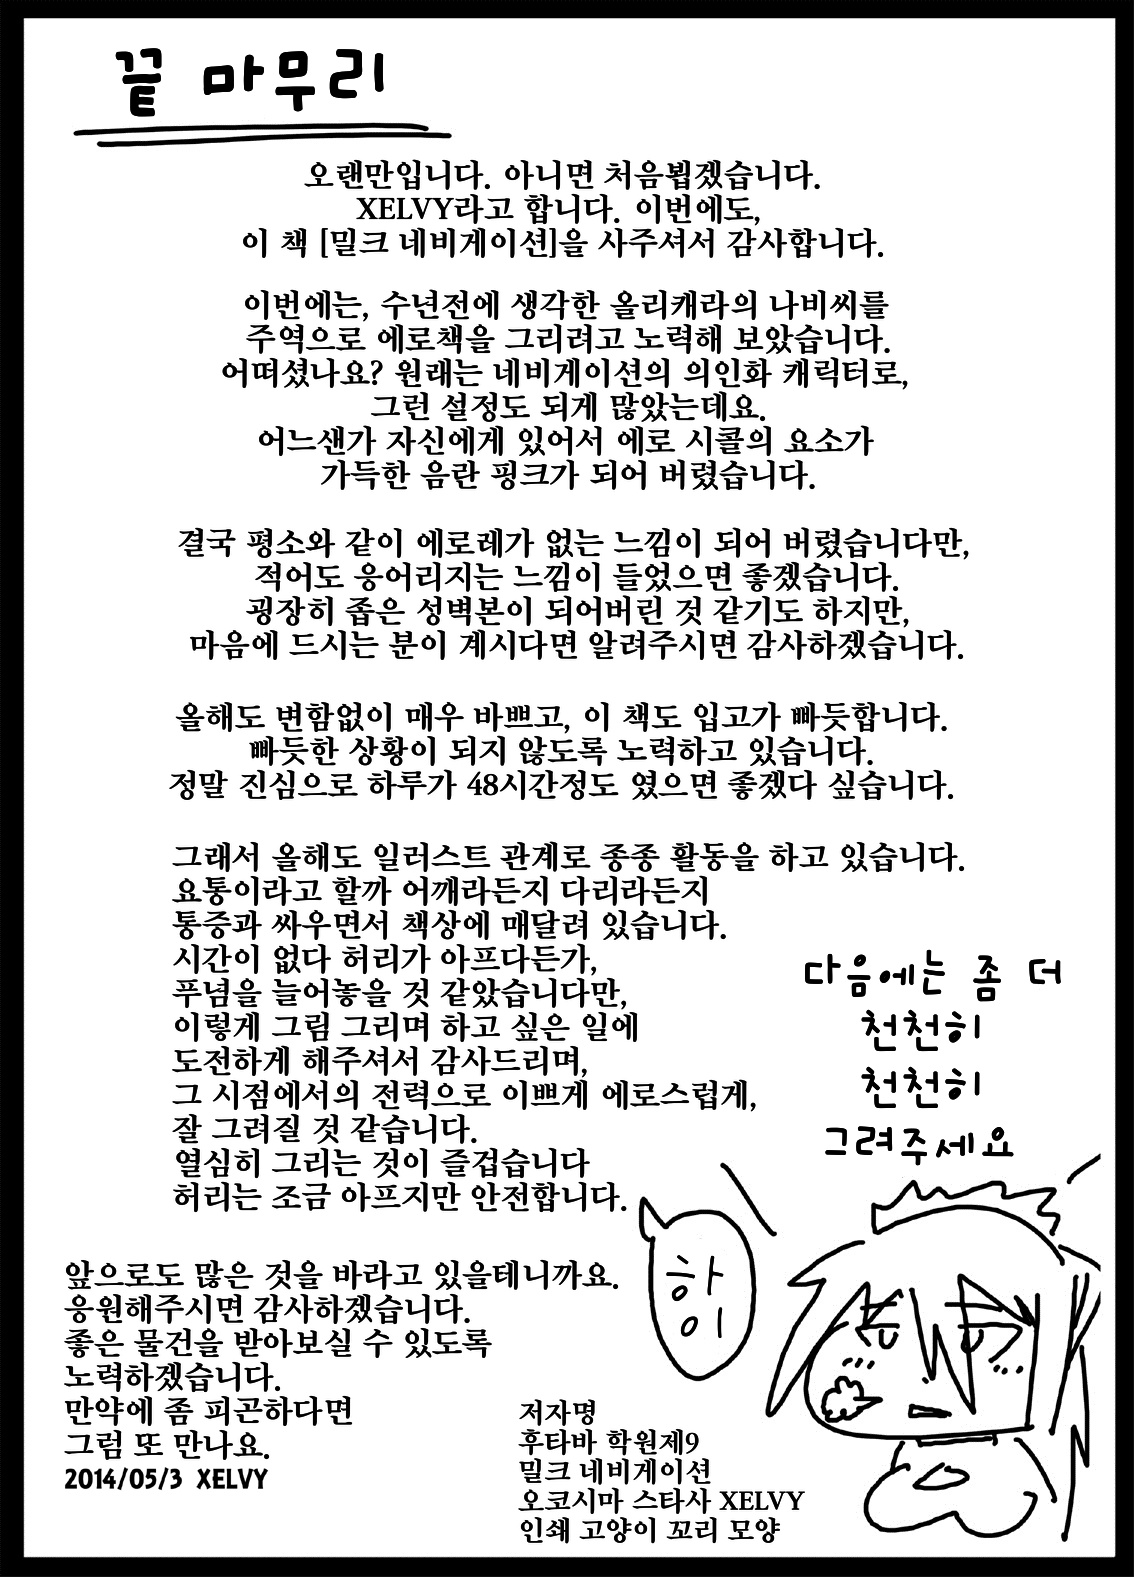 끝 마무리
오랜만입니다. 아니면 처음뵙겠습니다.
XELVY라고 합니다. 이번에도,
이 책 [밀크 네비게이션]을 사주셔서 감사합니다.
이번에는, 수년전에 생각한 올리캐라의 나비씨를
주역으로 에로책을 그리려고 노력해 보았습니다.
어떠셨나요? 원래는 네비게이션의 의인화 캐릭터로,
그런 설정도 되게 많았는데요.
어느샌가 자신에게 있어서 에로 시콜의 요소가
가득한 음란 핑크가 되어 버렸습니다.
결국 평소와 같이 에로레가 없는 느낌이 되어 버렸습니다만,
적어도 응어리지는 느낌이 들었으면 좋겠습니다.
굉장히 좁은 성벽본이 되어버린 것 같기도 하지만,
마음에 드시는 분이 계시다면 알려주시면 감사하겠습니다.
올해도 변함없이 매우 바쁘고, 이 책도 입고가 빠듯합니다.
빠듯한 상황이 되지 않도록 노력하고 있습니다.
정말 진심으로 하루가 48시간정도 였으면 좋겠다 싶습니다.
그래서 올해도 일러스트 관계로 종종 활동을 하고 있습니다.
요통이라고 할까 어깨라든지 다리라든지
통증과 싸우면서 책상에 매달려 있습니다.
시간이 없다 허리가 아프다든가,
푸념을 늘어놓을 것 같았습니다만,
이렇게 그림 그리며 하고 싶은 일에
도전하게 해주셔서 감사드리며,
그 시점에서의 전력으로 이쁘게 에로스럽게,
잘 그려질 것 같습니다.
열심히 그리는 것이 즐겁습니다
허리는 조금 아프지만 안전합니다.
다음에는 좀 더
천천히
천천히
그려주세요
하
이
앞으로도 많은 것을 바라고 있을테니까요.
응원해주시면 감사하겠습니다.
좋은 물건을 받아보실 수 있도록
노력하겠습니다.
만약에 좀 피곤하다면
그럼 또 만나요.
2014/05/3 XELVY
저자명
후타바 학원제9
밀크 네비게이션
오코시마 스타사 XELVY
인쇄 고양이 꼬리 모양